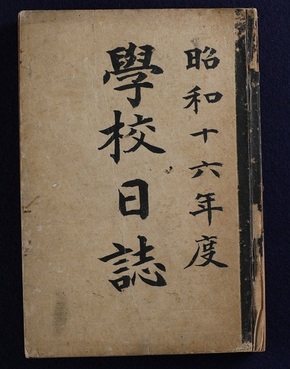 昭和十六年度
學校日誌